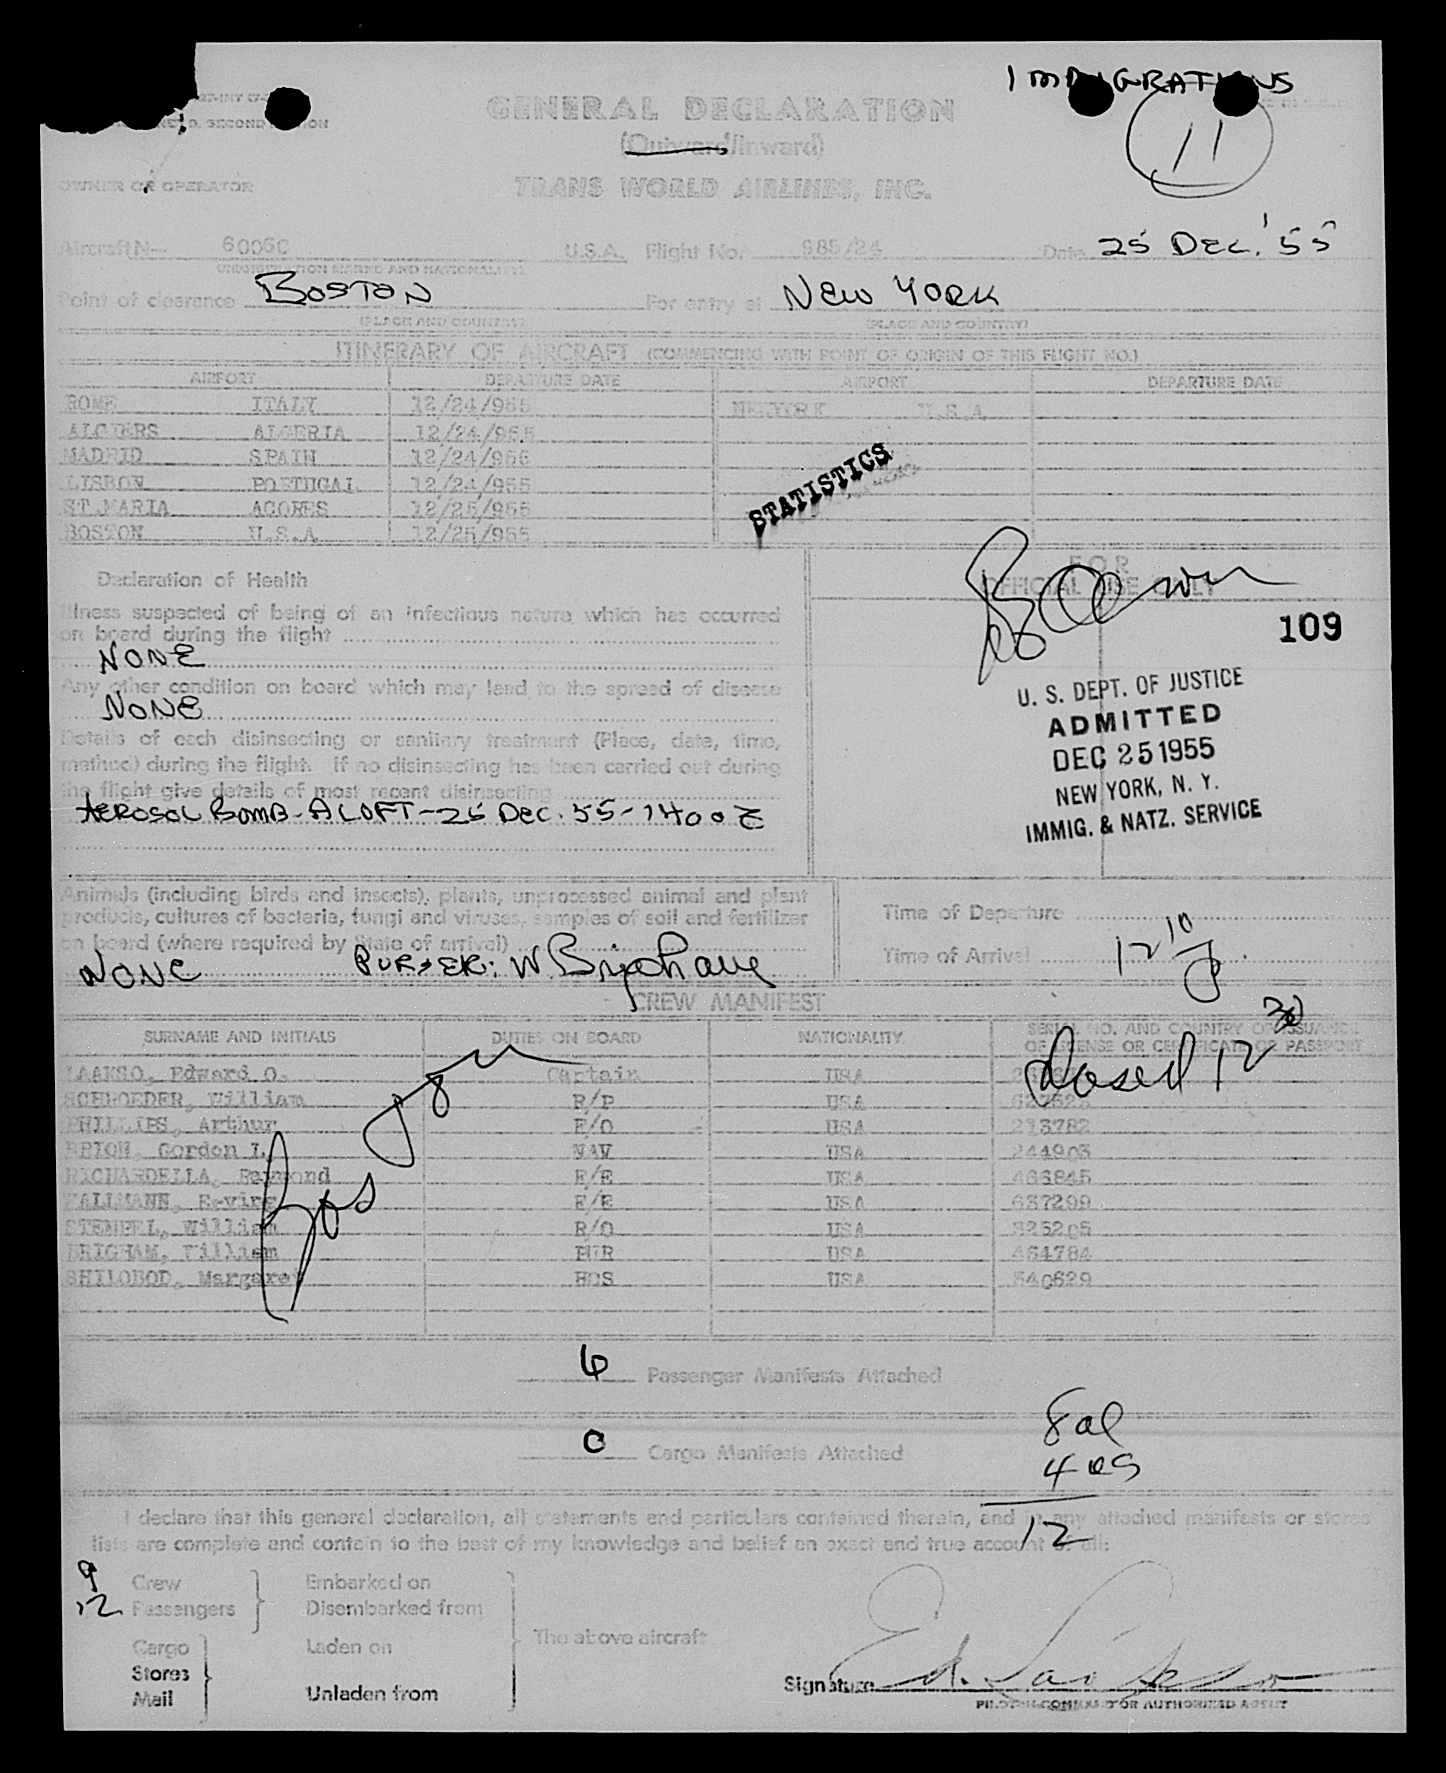 IMMIGRATIONS
11
GENERAL DECLARATION
(Outward/Inward)
OWNER OR OPERATOR TRANS WORLD AIRLINES, INC.
Aircraft N— 6006C U.S.A. Flight No. 985/24 Date 25 DEC. '55
Point of clearance BOSTON For entry at NEW YORK
(PLACE AND COUNTRY) (PLACE AND COUNTRY)
ITINERARY OF AIRCRAFT (COMMENCING WITH POINT OF ORIGIN OF THIS FLIGHT NO.)
AIRPORT DEPARTURE DATE AIRPORT DEPARTURE DATE
ROME ITALY 12/24/955 NEWYORK U.S.A
ALGIERS ALGERIA 12/24/955
MADRID SPAIN 12/24/955
LISBON PORTUGAL 12/24/955
ST.MARIA ACORES 12/25/955
BOSTON U.S.A 12/25/955
STATISTICS
Declaration of Health
FOR
OFFICIAL USE ONLY
Illness suspected of being of an infectious nature which has occurred
on board during the flight
NONE
109
Any other condition on board which may lead to the spread of disease
NONE
U. S. DEPT. OF JUSTICE
ADMITTED
DEC 25 1955
NEW YORK, N. Y.
IMMIG. & NATZ. SERVICE
Details of each disinsecting or sanitary treatment (Place, date, time,
method) during the flight. If no disinsecting has been carried out during
the flight give details of most recent disinsecting
AEROSOL BOMB - ALOFT - 25 DEC. 55 - 1400Z
Animals (including birds and insects), plants, unprocessed animal and plant
products, cultures of bacteria, fungi and viruses, samples of soil and fertilizer
on board (where required by State of arrival)
NONE PURSER: W. Brigham
Time of Departure
Time of Arrival 12 10
CREW MANIFEST
SURNAME AND INITIALS DUTIES ON BOARD NATIONALITY SERIAL NO. AND COUNTRY OF ISSUANCE
OF LICENSE OR CERTIFICATE OR PASSPORT
closed 12 30
LAAKSO, Edward O. Captain USA
SCHROEDER, William R/P USA
PHILLIPS, Arthur F/O USA 213782
Gordon I. NAV USA 244903
RICHARDELLA, Raymond F/E USA 466845
HALLMANN, Erving F/E USA 637299
STEMPEL, William R/O USA 325205
BRIGHAM, William PUR USA 464784
SHILOBOD, Margaret HOS USA 540629
Bos
6 Passenger Manifests Attached
0 Cargo Manifests Attached
8 al
4 us
12
I declare that this general declaration, all statements and particulars contained therein, and in any attached manifests or stores
lists are complete and contain to the best of my knowledge and belief an exact and true account of all:
9 Crew Embarked on
12 Passengers Disembarked from
Cargo Laden on
The above aircraft
Stores
Mail Unladen from
Signature Ed. Laakso
PILOT IN COMMAND OR AUTHORIZED AGENT